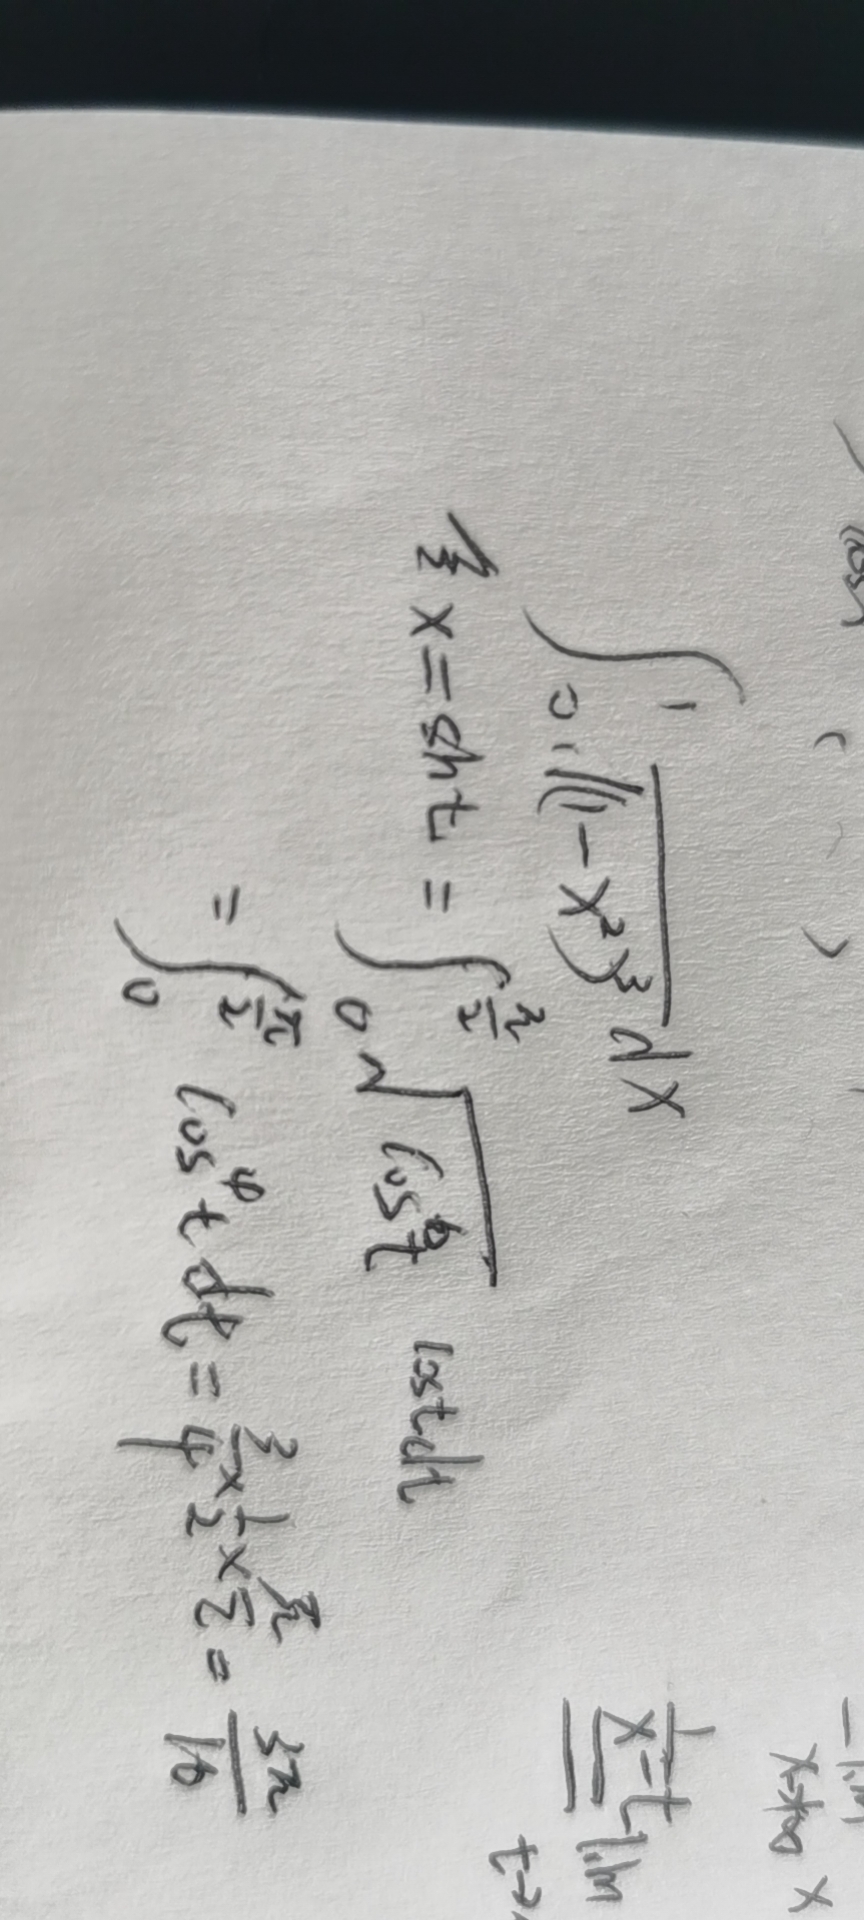 ∫₀¹ √(1-x²)³ dx
令 x=sint = ∫₀^{π/2} √cos⁶t cost dt
= ∫₀^{π/2} cos⁴t dt = 3/4 × 1/2 × π/2 = 3π/16
lim x→+∞ x
1/x=t lim t→